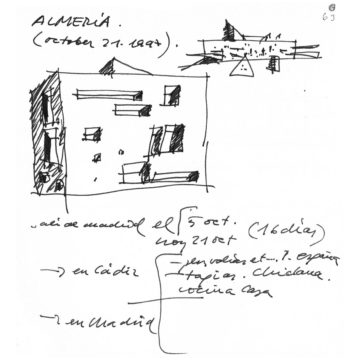 63
ALMERÍA.
(october 21. 1997).
de madrid el 5 oct.
hoy 21 oct
(16 días)
en
españa
→ en Cádiz
tapias. Chiclana.
cocina casa
→ en Madrid